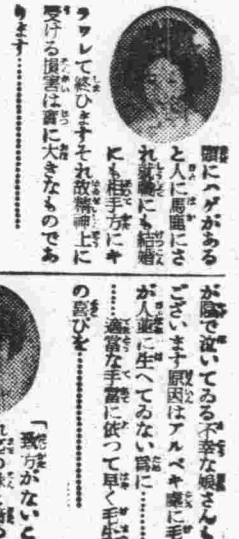 頭にハゲがある
と人に馬鹿にさ
れ就職にも結婚
にも相手方にキ
ラワレて終ひますそれ故精神上に
受ける損害は實に大きなものであ
ります……………………
が陰で泣いてゐる不幸な娘さんも
ございます原因はアルベキ處に毛
が人並に生へてゐない爲に………
……適當な手當に依つて早く毛生
の喜びを……………
「致方がないと